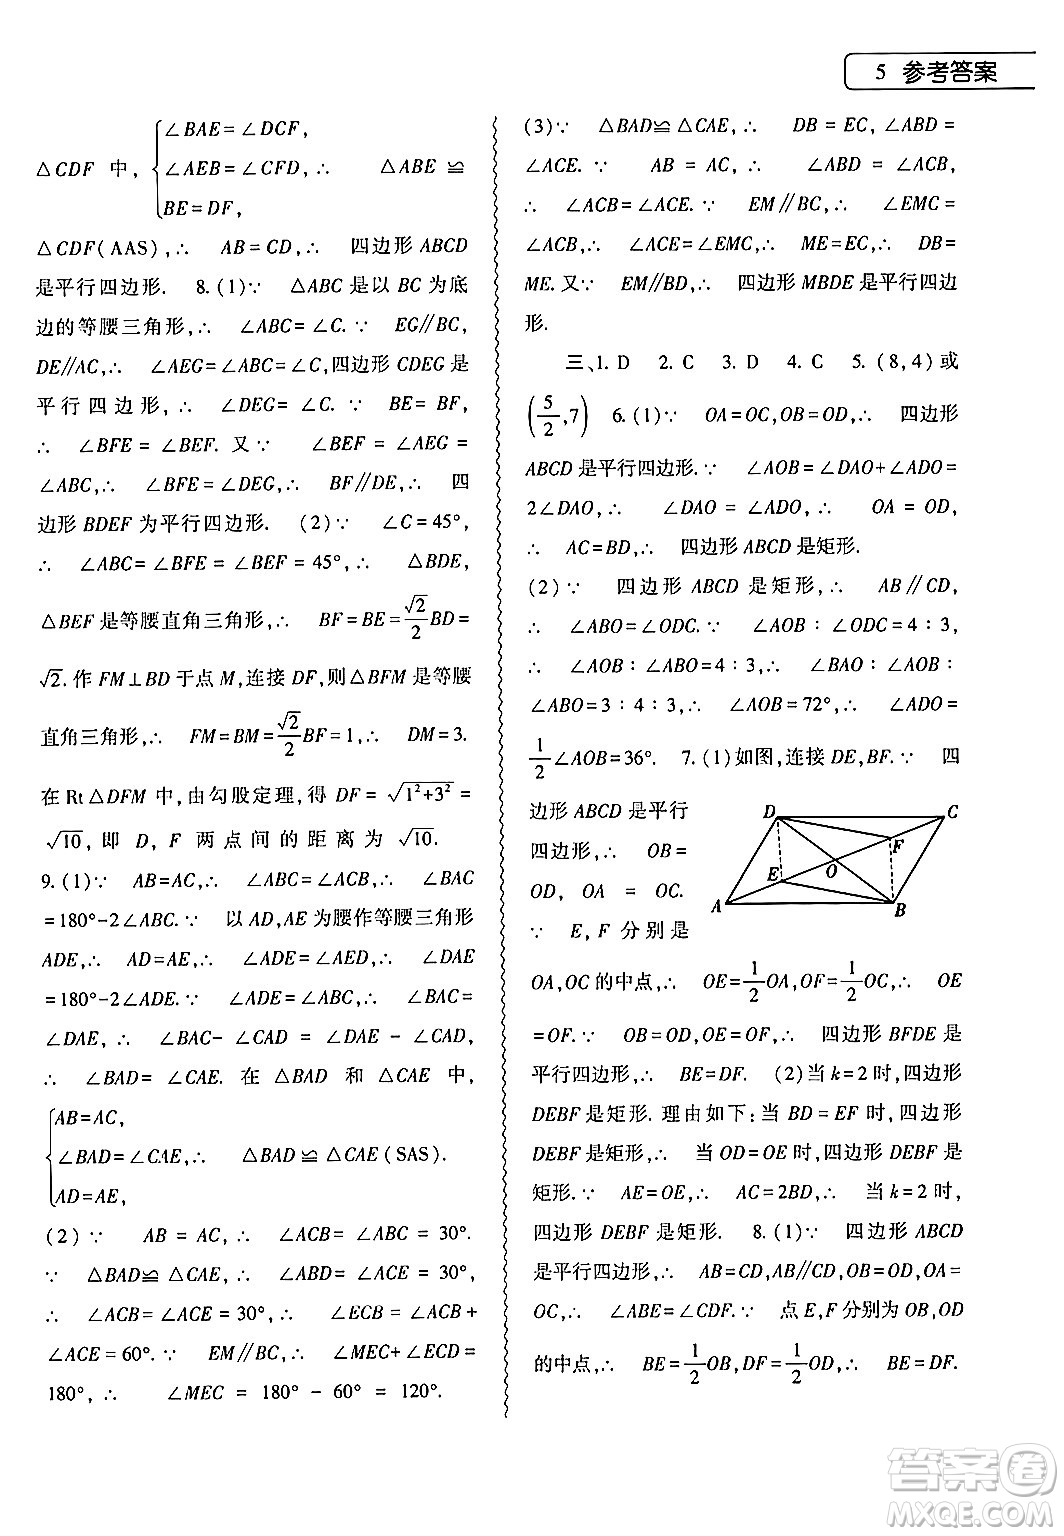 5 参考答案
△CDF 中, {∠BAE=∠DCF, ∠AEB=∠CFD, BE=DF, ∴ △ABE≌
△CDF(AAS),∴ AB=CD,∴ 四边形 ABCD
是平行四边形. 8.(1)∵ △ABC是以 BC 为底
边的等腰三角形,∴ ∠ABC=∠C.∵ EG∥BC,
DE∥AC,∴ ∠AEG=∠ABC=∠C,四边形 CDEG 是
平行四边形,∴ ∠DEG=∠C.∵ BE=BF,
∴ ∠BFE=∠BEF.又∵ ∠BEF=∠AEG=
∠ABC,∴ ∠BFE=∠DEG,∴ BF∥DE,∴ 四
边形 BDEF 为平行四边形. (2)∵ ∠C=45°,
∴ ∠ABC=∠BFE=∠BEF=45°,∴ △BDE,
△BEF是等腰直角三角形,∴ BF=BE=√2/2BD=
√2.作 FM⊥BD于点M,连接 DF,则△BFM是等腰
直角三角形,∴ FM=BM=√2/2BF=1,∴ DM=3.
在 Rt△DFM 中,由勾股定理,得 DF=√(1²+3²)=
√10,即 D, F 两点间的距离为 √10.
9.(1)∵ AB=AC,∴ ∠ABC=∠ACB,∴ ∠BAC
=180°-2∠ABC.∵ 以 AD,AE 为腰作等腰三角形
ADE,∴ AD=AE,∴ ∠ADE=∠AED,∴ ∠DAE
=180°-2∠ADE.∵ ∠ADE=∠ABC,∴ ∠BAC=
∠DAE, ∴ ∠BAC-∠CAD=∠DAE-∠CAD,
∴ ∠BAD=∠CAE.在 △BAD 和 △CAE 中,
{AB=AC, ∠BAD=∠CAE, AD=AE, ∴ △BAD≌△CAE(SAS).
(2)∵ AB=AC,∴ ∠ACB=∠ABC=30°.
∵ △BAD≌△CAE,∴ ∠ABD=∠ACE=30°,
∴ ∠ACB=∠ACE=30°,∴ ∠ECB=∠ACB+
∠ACE=60°.∵ EM∥BC,∴ ∠MEC+∠ECD=
180°,∴ ∠MEC = 180° - 60° = 120°.
(3)∵ △BAD≌△CAE,∴ DB=EC,∠ABD=
∠ACE.∵ AB=AC,∴ ∠ABD=∠ACB,
∴ ∠ACB=∠ACE.∵ EM∥BC,∴ ∠EMC=
∠ACB,∴ ∠ACE=∠EMC,∴ ME=EC,∴ DB=
ME.又∵ EM∥BD,∴ 四边形 MBDE 是平行四边
形.
三、1. D 2. C 3. D 4. C 5. (8,4)或
(5/2,7) 6.(1)∵ OA=OC,OB=OD,∴ 四边形
ABCD是平行四边形.∵ ∠AOB=∠DAO+∠ADO=
2∠DAO,∴ ∠DAO=∠ADO,∴ OA=OD,
∴ AC=BD,∴ 四边形ABCD是矩形.
(2)∵ 四边形 ABCD 是矩形,∴ AB∥CD,
∴ ∠ABO=∠ODC.∵ ∠AOB∶∠ODC=4∶3,
∴ ∠AOB∶∠ABO=4∶3,∴ ∠BAO∶∠AOB∶
∠ABO=3∶4∶3,∴ ∠AOB=72°,∴ ∠ADO=
1/2∠AOB=36°. 7.(1)如图,连接 DE,BF.∵ 四
边形 ABCD 是平行
四边形,∴ OB=
OD, OA = OC.
∵ E, F 分别是
D C F E O A B
OA,OC的中点,∴ OE=1/2OA,OF=1/2OC,∴ OE
=OF.∵ OB=OD,OE=OF,∴ 四边形 BFDE 是
平行四边形,∴ BE=DF. (2)当 k=2 时,四边形
DEBF是矩形.理由如下:当 BD=EF 时,四边形
DEBF是矩形,∴ 当OD=OE时,四边形DEBF是
矩形.∵ AE=OE,∴ AC=2BD,∴ 当 k=2 时,
四边形 DEBF 是矩形. 8.(1)∵ 四边形 ABCD
是平行四边形,∴ AB=CD,AB∥CD,OB=OD,OA=
OC,∴ ∠ABE=∠CDF.∵ 点 E,F 分别为 OB,OD
的中点,∴ BE=1/2OB,DF=1/2OD,∴ BE=DF.
答案卷
MXQE.COM